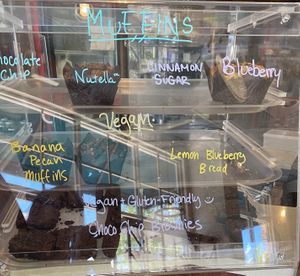 MUFFINS
Chocolate Chip
Nutella™
CINNAMON SUGAR
Blueberry
Vegan
Banana Pecan Muffins
Lemon Blueberry Bread
Vegan + Gluten-Friendly
Choco Chip Brownies